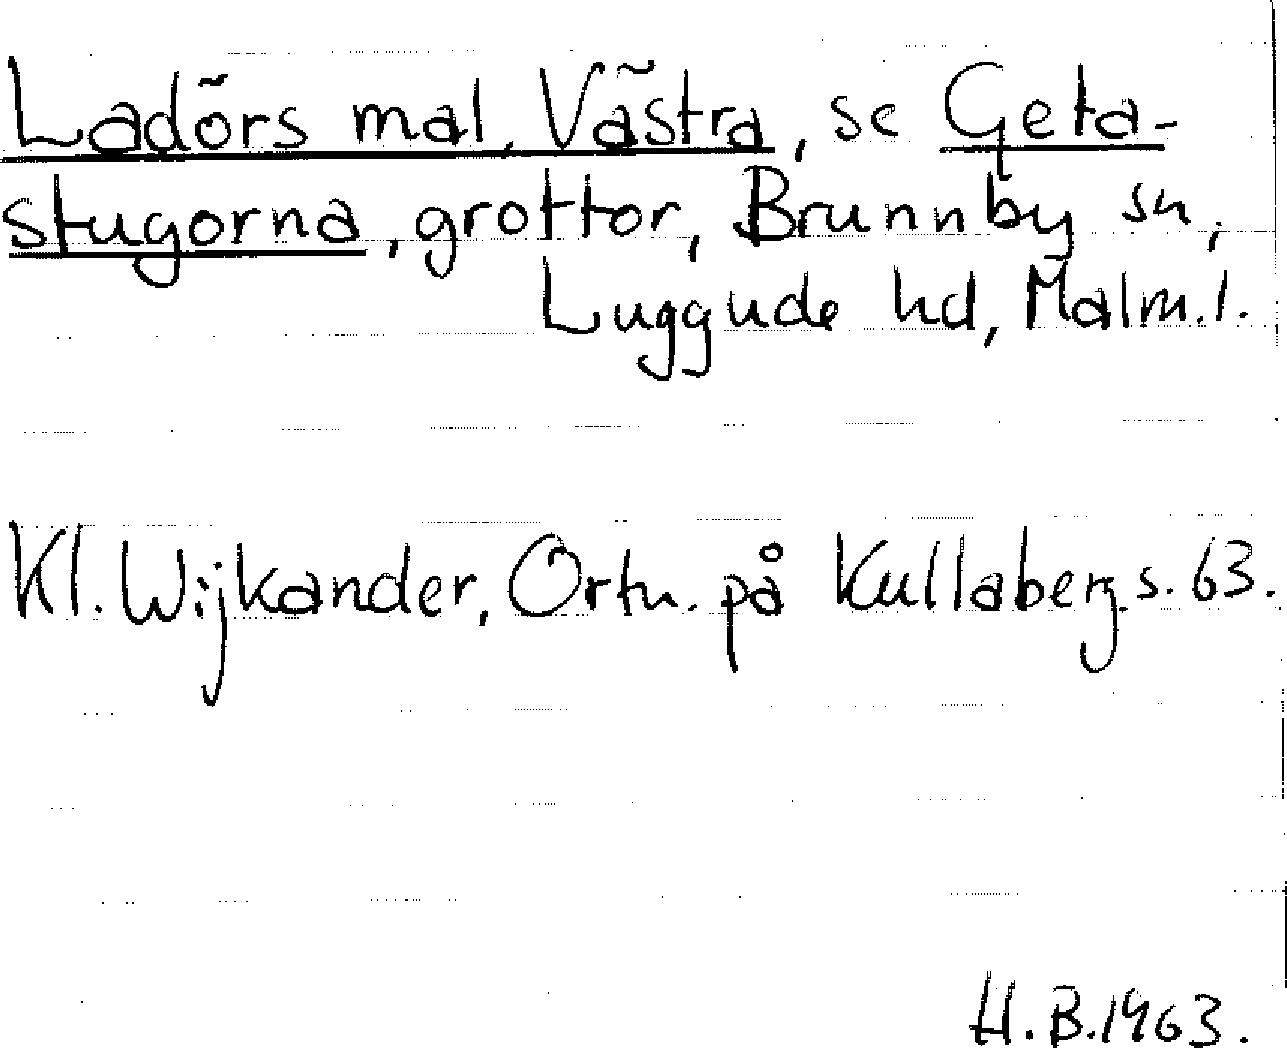 Ladörs mal, Västra, se Geta-
stugorna, grottor, Brunnby sn,
Luggude hd, Malm.l.
Kl. Wijkander, Ortn. på Kullaberg s. 63.
H.B.1963.